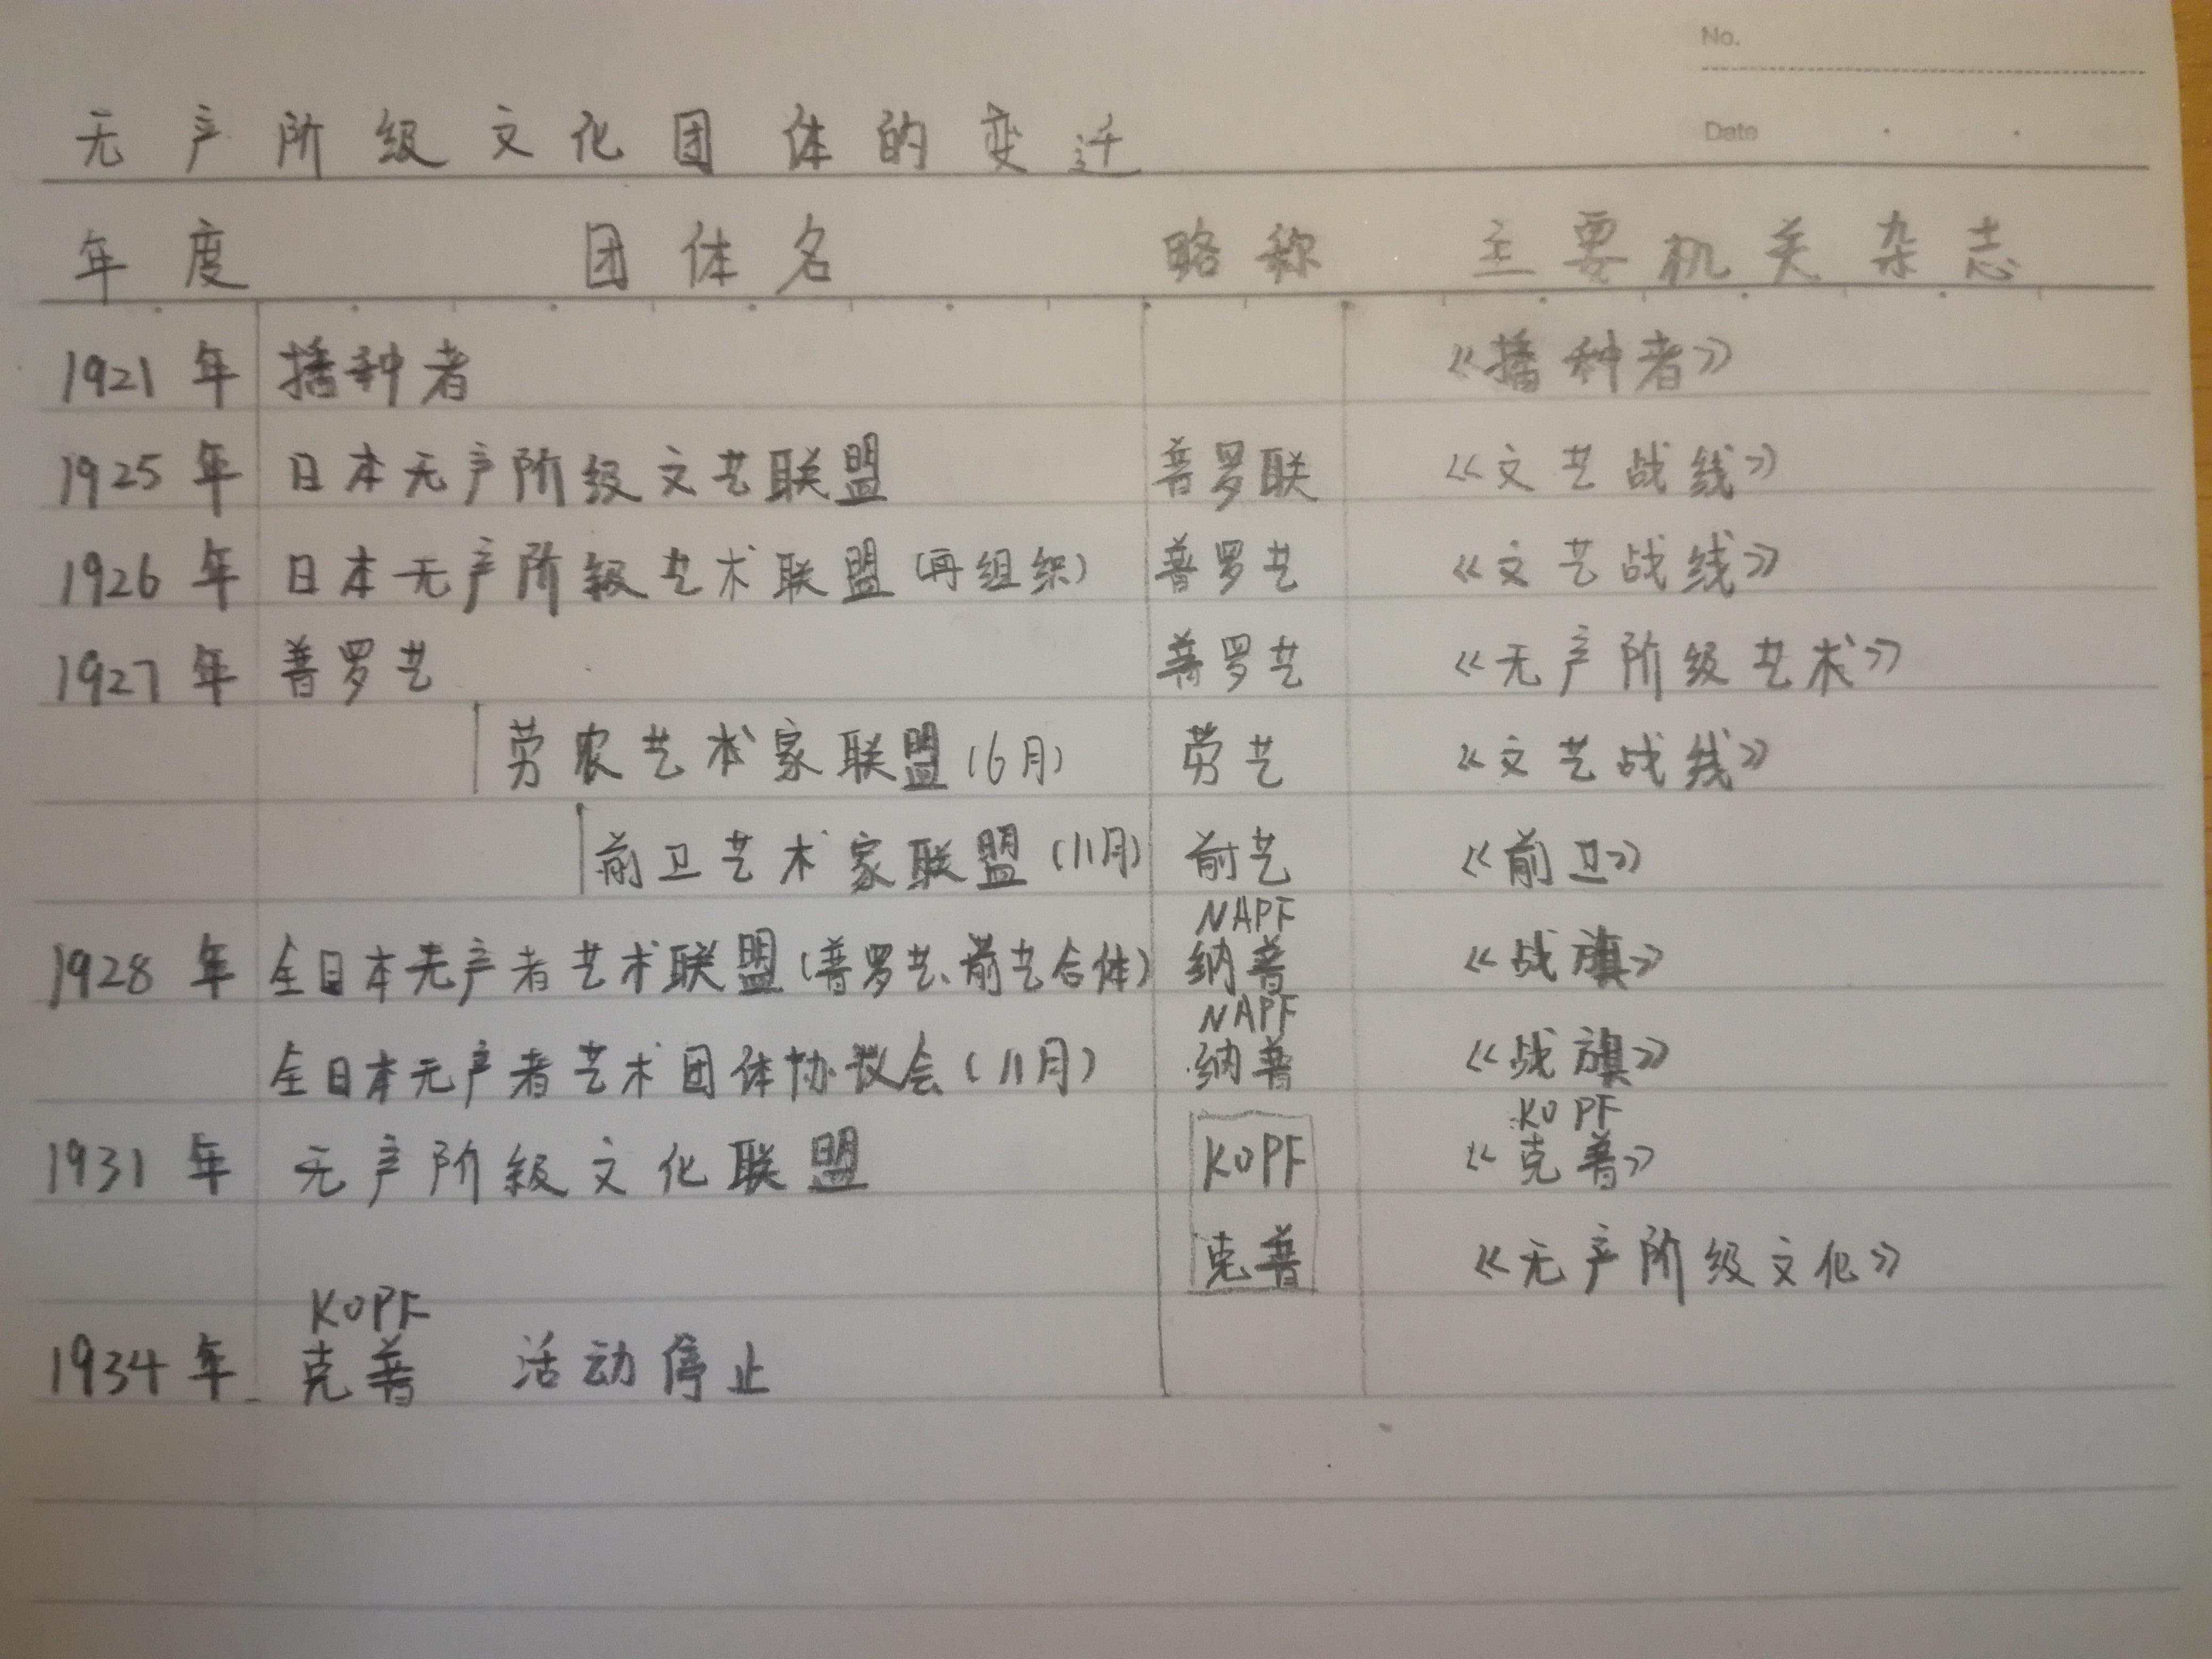 No.
Date
无产阶级文化团体的变迁
年度 团体名 略称 主要机关杂志
1921年 播种者 《播种者》
1925年 日本无产阶级文艺联盟 普罗联 《文艺战线》
1926年 日本无产阶级艺术联盟(再组织) 普罗艺 《文艺战线》
1927年 普罗艺 普罗艺 《无产阶级艺术》
劳农艺术家联盟(6月) 劳艺 《文艺战线》
前卫艺术家联盟(11月) 前艺 《前卫》
NAPF
1928年 全日本无产者艺术联盟(普罗艺、前艺合体) 纳普 《战旗》
NAPF
全日本无产者艺术团体协议会(11月) 纳普 《战旗》
KOPF
1931年 无产阶级文化联盟 KOPF 《克普》
克普 《无产阶级文化》
KOPF
1934年 克普 活动停止